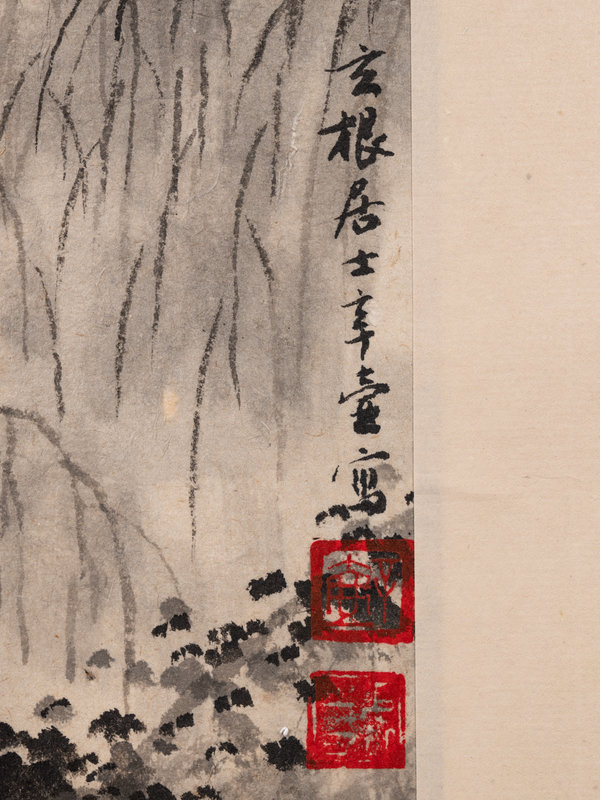 玄根居士辛壺寫